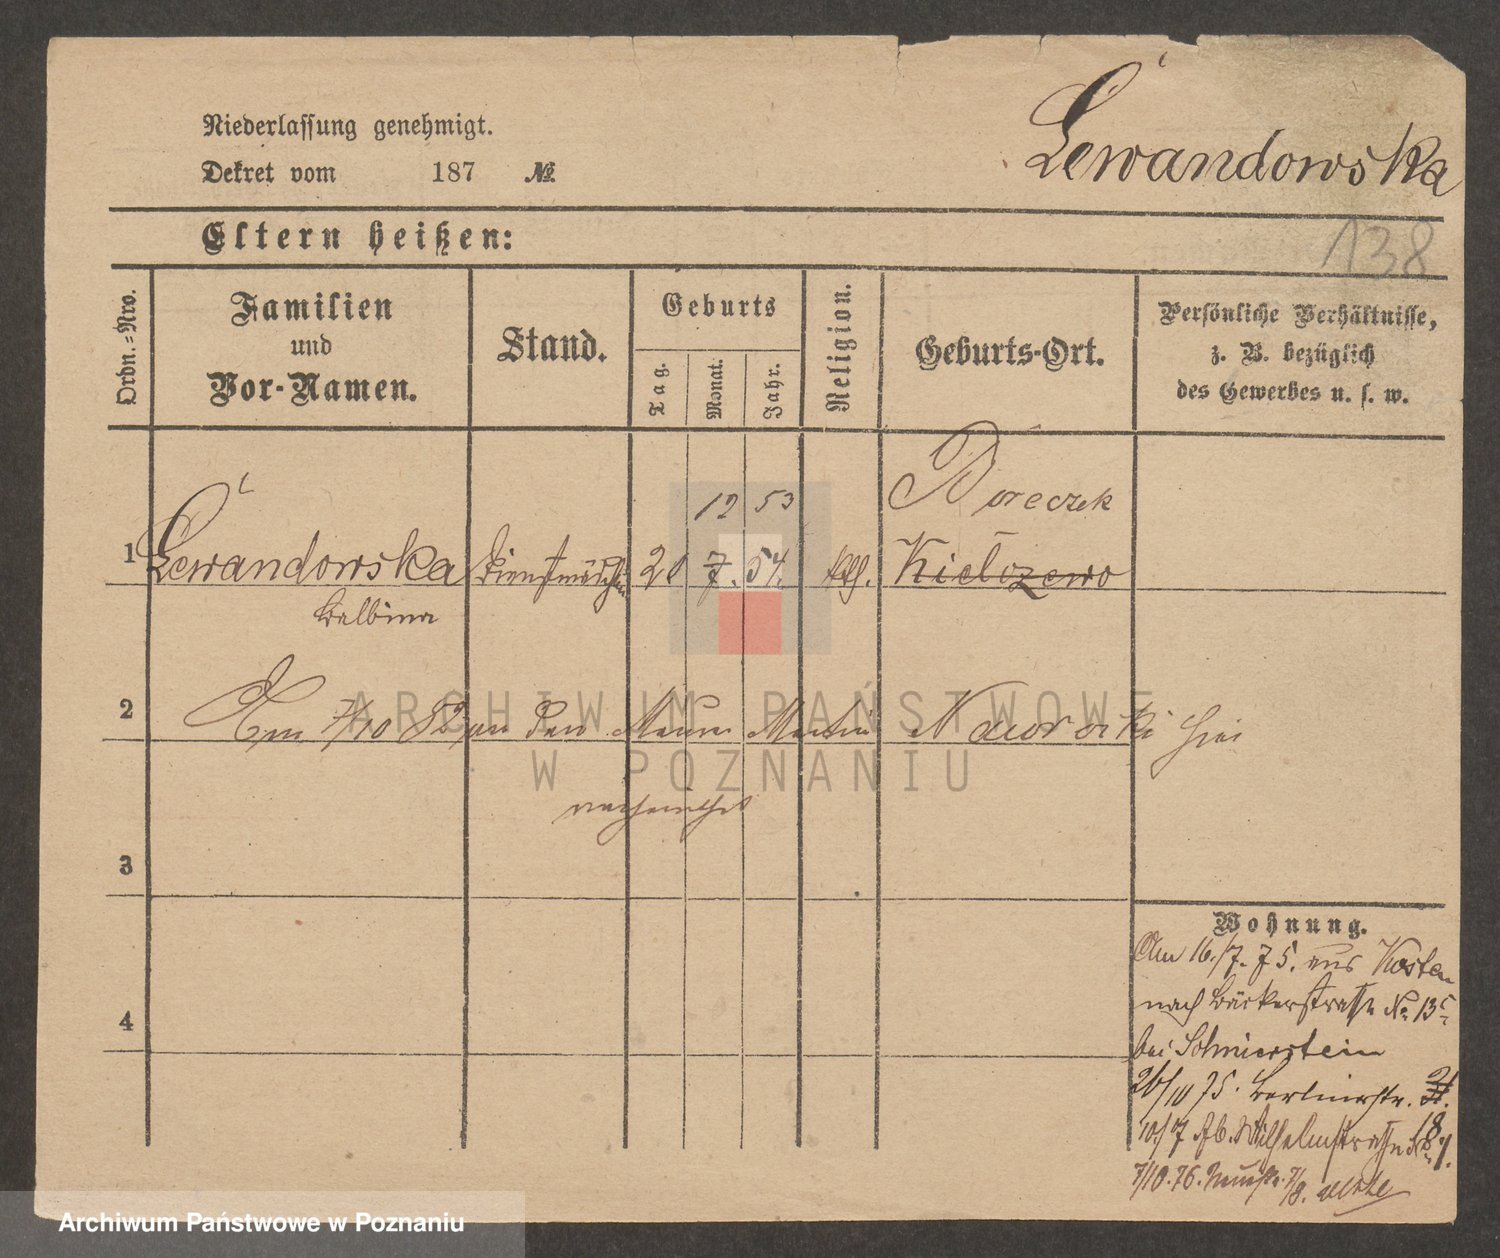 Lewandowska
Niederlassung genehmigt.
Dekret vom 187 №
138
Eltern heißen:
Ordn.-Nro.
Familien
und
Vor-Namen.
Stand.
Geburts
Tag.
Monat.
Jahr.
Religion.
Geburts-Ort.
Persönliche Verhältnisse,
z. B. bezüglich
des Gewerbes u. s. w.
12 53 Boreczek
1 Lewandowska Dienstmädchen 20 7. 54. kth. Kielczewo
Balbina
2 Am 7/10 82 an den Maurer Martin Nawrocki hier
verheirathet
3
4
Wohnung.
Am 16./7. 75. aus Kosten
nach Bäckerstraße No. 13
bei Schmierstein
26/10 75. Berlinerstr. 31.
10/7 76. Wilhelmstraße No. 18
7/10. 76. 7/8.
ARCHIWUM PAŃSTWOWE
W POZNANIU
Archiwum Państwowe w Poznaniu